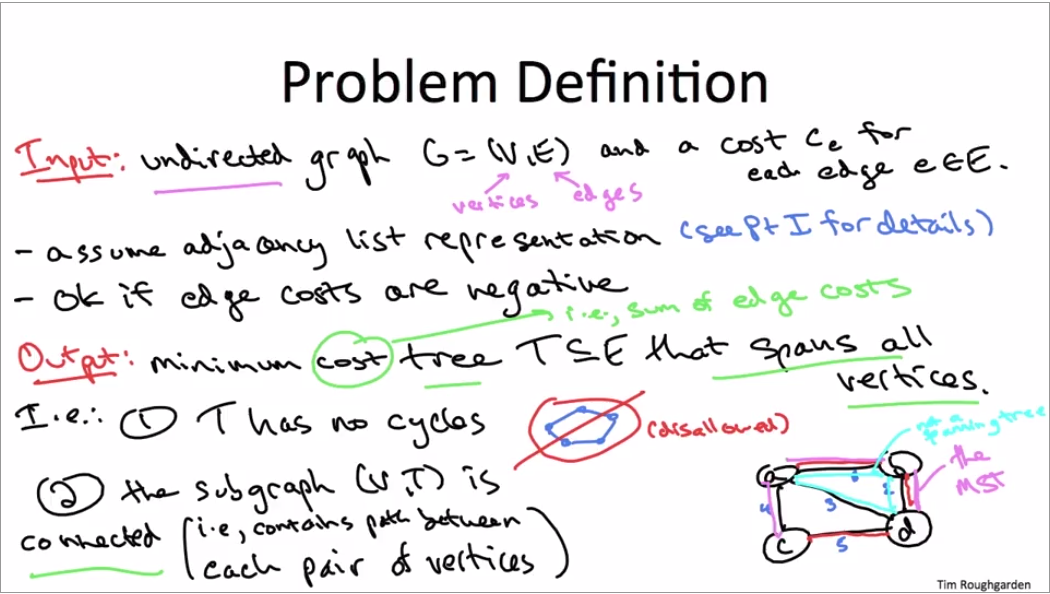 Problem Definition
Input: undirected graph G = (V, E) and a cost ce for
each edge e ∈ E.
vertices edges
- assume adjacency list representation (see Pt I for details)
- OK if edge costs are negative
i.e., sum of edge costs
Output: minimum cost tree T ⊆ E that spans all
vertices.
I.e.: ① T has no cycles (disallowed)
not a spanning tree
the
MST
② the subgraph (V, T) is
connected (i.e., contains path between
each pair of vertices)
a
4 3 2
c 5 d
Tim Roughgarden